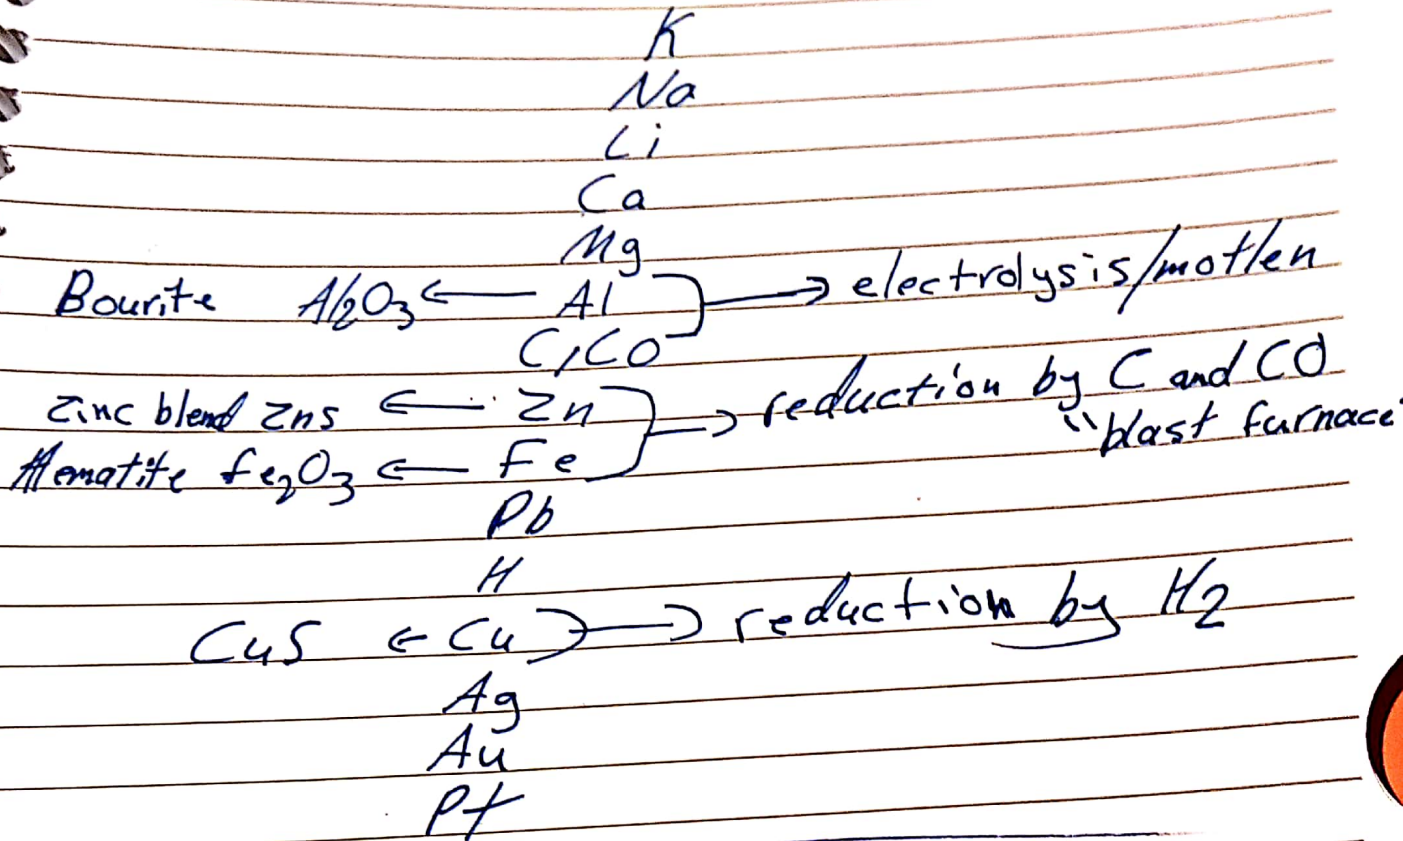 K
Na
Li
Ca
Mg
Bourite Al2O3 ← Al → electrolysis/motlen
C,CO
zinc blend Zns ← Zn → reduction by C and CO
Hematite fe2O3 ← Fe "blast furnace"
Pb
H
CuS ← Cu → reduction by H2
Ag
Au
Pt